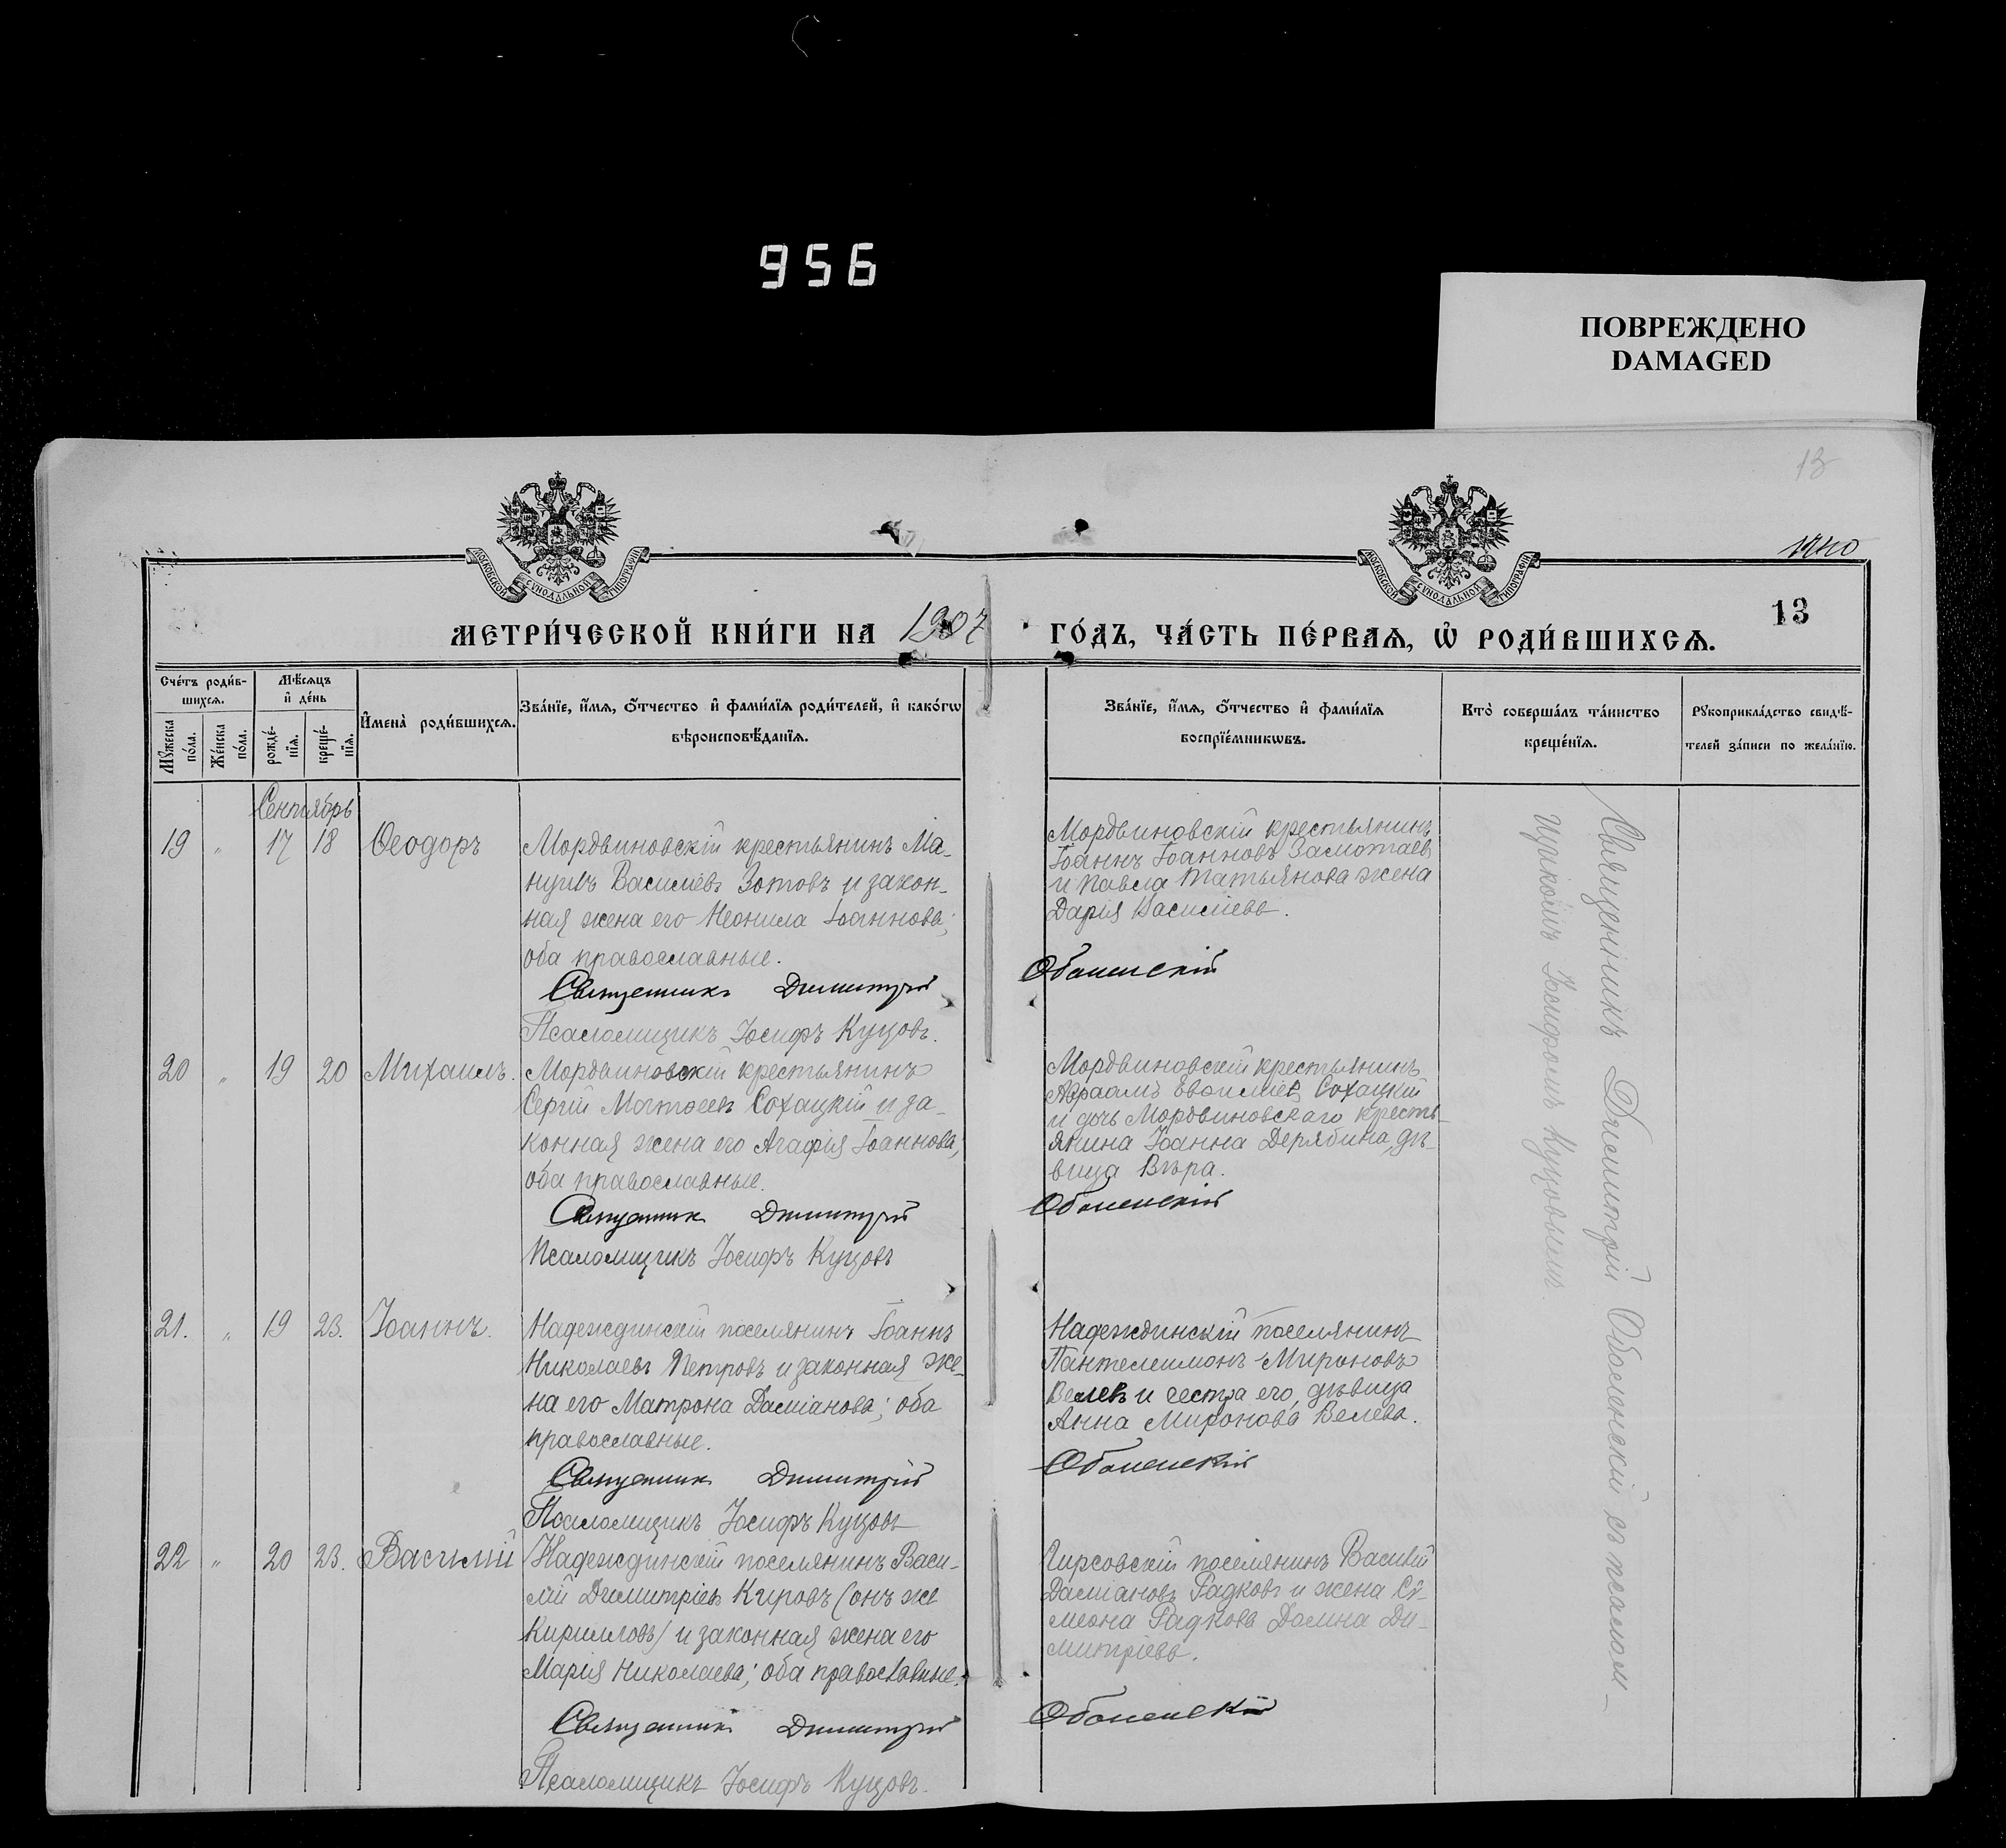 956
ПОВРЕЖДЕНО
DAMAGED
13
1440
МОСКОВСКОЙ СѴНОДАЛЬНОЙ ТИПОГРАФІИ
МОСКОВСКОЙ СѴНОДАЛЬНОЙ ТИПОГРАФІИ
МЕТРИ́ЧЕСКОЙ КНИ́ГИ НА 1907
ГО́ДЪ, ЧА́СТЬ ПЕ́РВАѦ, Ѡ҆ РОДИ́ВШИХСѦ.
13
Сче́тъ роди́в-
шихсѧ.
Мꙋ́жеска по́ла.
Же́нска по́ла.
Мѣ́сѧцъ
и҆ де́нь
рожде́-
нїѧ.
креще́-
нїѧ.
И҆мена̀ роди́вшихсѧ.
Зва́нїе, и҆́мѧ, ѻ҆́тчество и҆ фами́лїѧ роди́телей, и҆ како́гѡ
вѣроисповѣ́данїѧ.
Зва́нїе, и҆́мѧ, ѻ҆́тчество и҆ фами́лїѧ
воспрїе́мникѡвъ.
Кто̀ соверша́лъ та́инство
креще́нїѧ.
Рꙋкоприкла́дство свидѣ́-
телей за́писи по жела́нїю.
Сентябрь
19 " 17 18 Ѳеодоръ
Мордвиновскій крестьянинъ Ма-
нуилъ Василіевъ Зотовъ и закон-
ная жена его Неонила Іоаннова;
оба православные.
Священникъ Димитрій
Псаломщикъ Іосифъ Куцовъ.
Мордвиновскій крестьянинъ
Іоаннъ Іоанновъ Замотаевъ
и Павла Татьянова жена
Дарія Василіева.
Оболенскій
20 " 19 20 Михаилъ.
Мордвиновскій крестьянинъ
Сергій Матѳеевъ Сохацкій и за-
конная жена его Агафія Іоаннова,
оба православные.
Священник Димитрій
Псаломщикъ Іосифъ Куцовъ
Мордвиновскій крестьянинъ
Авраамъ Сохацкій
и дочь Мордвиновскаго кресть-
янина Іоанна Дерябина, дѣ-
вица Вѣра.
Оболенскій
21. " 19 23. Іоаннъ.
Надеждинскій поселянинъ Іоаннъ
Николаевъ Петровъ и законная же-
на его Матрона Даміанова; оба
православные.
Священник Димитрій
Псаломщикъ Іосифъ Куцовъ
Надеждинскій поселянинъ
Пантелеимонъ Мироновъ
Велевъ и сестра его, дѣвица
Анна Миронова Велева.
Оболенскій
22 " 20 23. Василій
Надеждинскій поселянинъ Васи-
лій Димитріевъ Кировъ (онъ же
Кирилловъ) и законная жена его
Марія Николаева; оба православные.
Священникъ Димитрій
Псаломщикъ Іосифъ Куцовъ.
Гирсовскій поселянинъ Василій
Даміановъ Радковъ и жена Си-
меона Радкова Домна Ди-
митріева.
Оболенскій
Священникъ Димитрій Оболенскій съ псалом-
щикомъ Іосифомъ Куцовымъ.